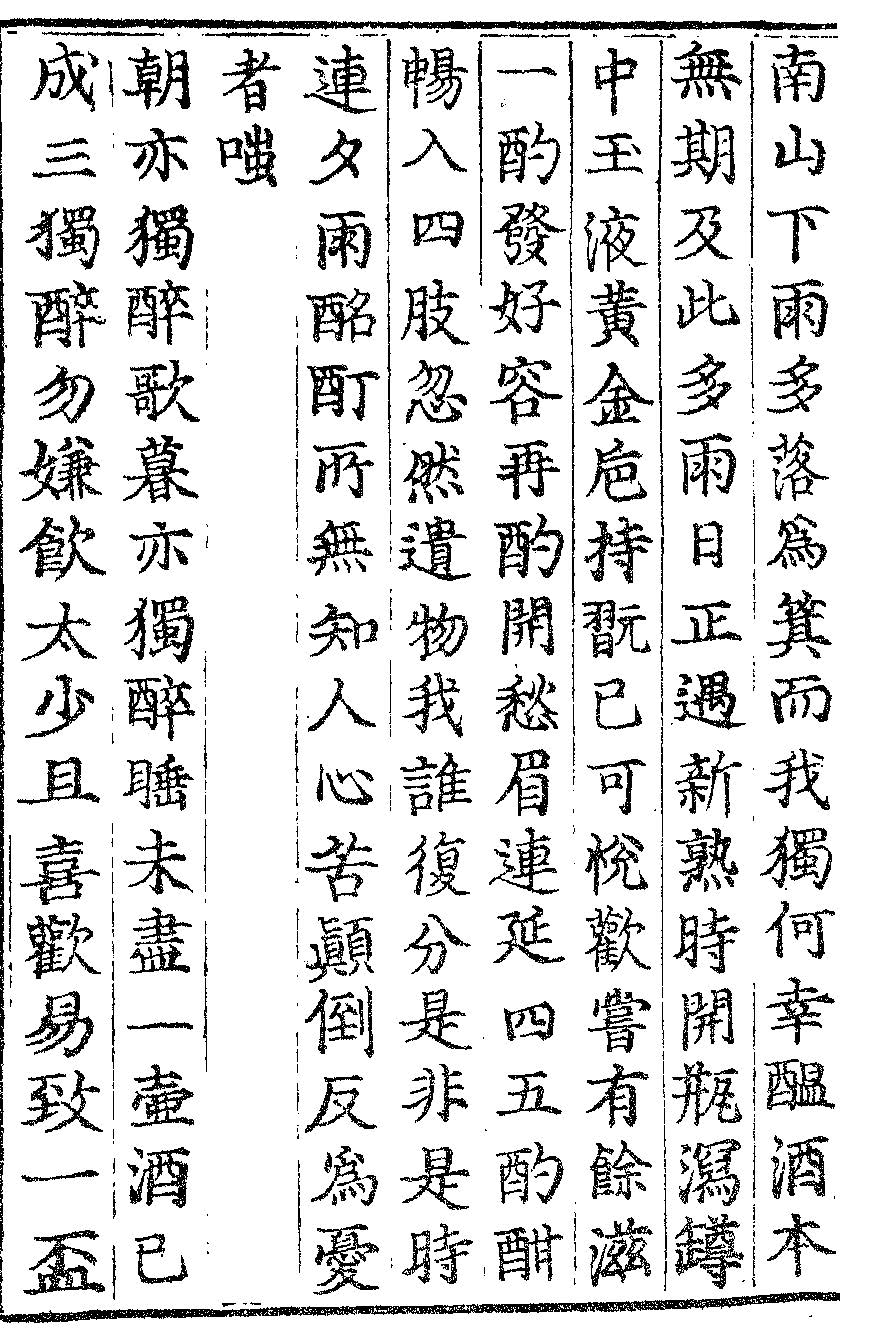 南山下雨多落爲箕而我獨何幸醖酒本
無期及此多雨日正遇新熟時開瓶瀉罇
中玉液黄金巵持翫已可悅歡嘗有餘滋
一酌發好容再酌開愁眉連延四五酌酣
暢入四肢忽然遺物我誰復分是非是時
連夕雨酩酊所無知人心苦顚倒反爲憂
者嗤
朝亦獨醉歌暮亦獨醉睡未盡一壷酒已
成三獨醉勿嫌飮太少且喜歡易致一盃